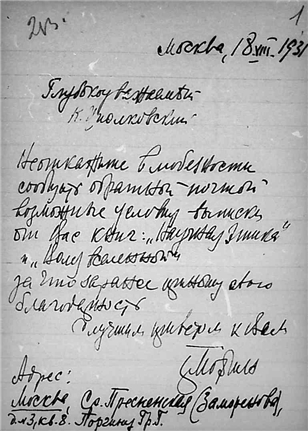 1
Москва, 18 VIII. 1931
Глубокоуважаемый
К. Циолковский
Не откажите в любезности
сообщить обратной почтой
возможные условия выписки
от Вас книг: „Научная Этика"
и „Воля Вселенной"
за что заранее приношу
благодарность
С лучшим приветом к Вам
Адрес:
Москва, Ср. Пресненская (Заморенова),
д. №3, кв. 8.